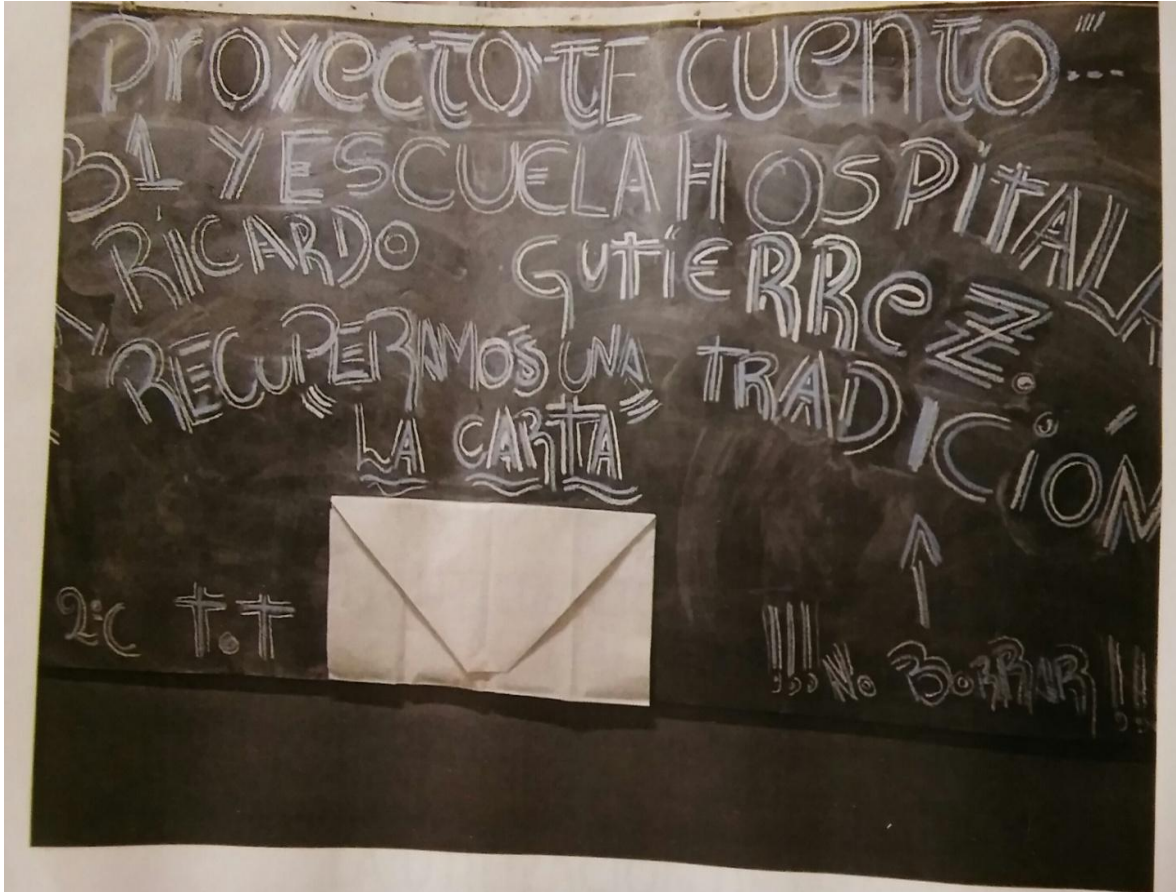 Proyecto TE CUENTO...
B1 Y ESCUELA HOSPITALA
RICARDO GUTIERREZ.
RECUPERAMOS UNA TRADICIÓN
"LA CARTA"
2°C T.T
!!!No BORRAR!!